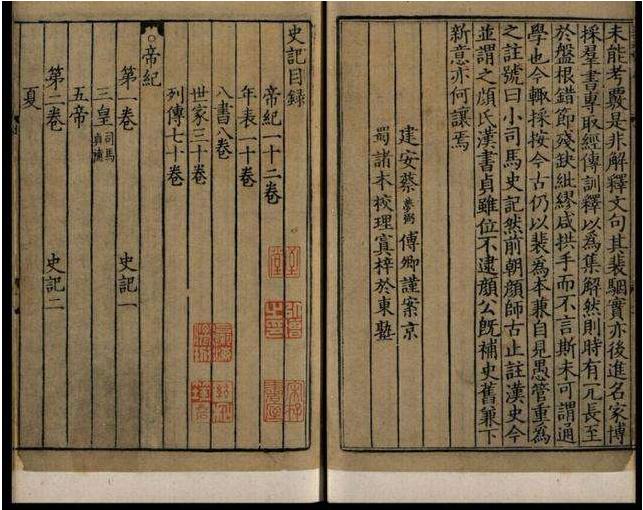 未能考覈是非解釋文句其裴駰實亦後進名家博
採羣書專取經傳訓釋以爲集解然則時有冗長至
於盤根錯節殘缺紕繆咸拱手而不言斯未可謂通
學也今輒採按今古仍以裴爲本兼自見愚管重爲
之註號曰小司馬史記然前朝顔師古止註漢史今
並謂之顔氏漢書貞雖位不逮顔公旣補史舊兼下
新意亦何讓焉
建安蔡夢弼傅卿謹案京
蜀諸本校理寘梓於東塾
史記目録
帝紀一十二卷
年表一十卷
八書八卷
世家三十卷
列傳七十卷
帝紀
第一卷 史記一
三皇 司馬貞補
五帝
第二卷 史記二
夏